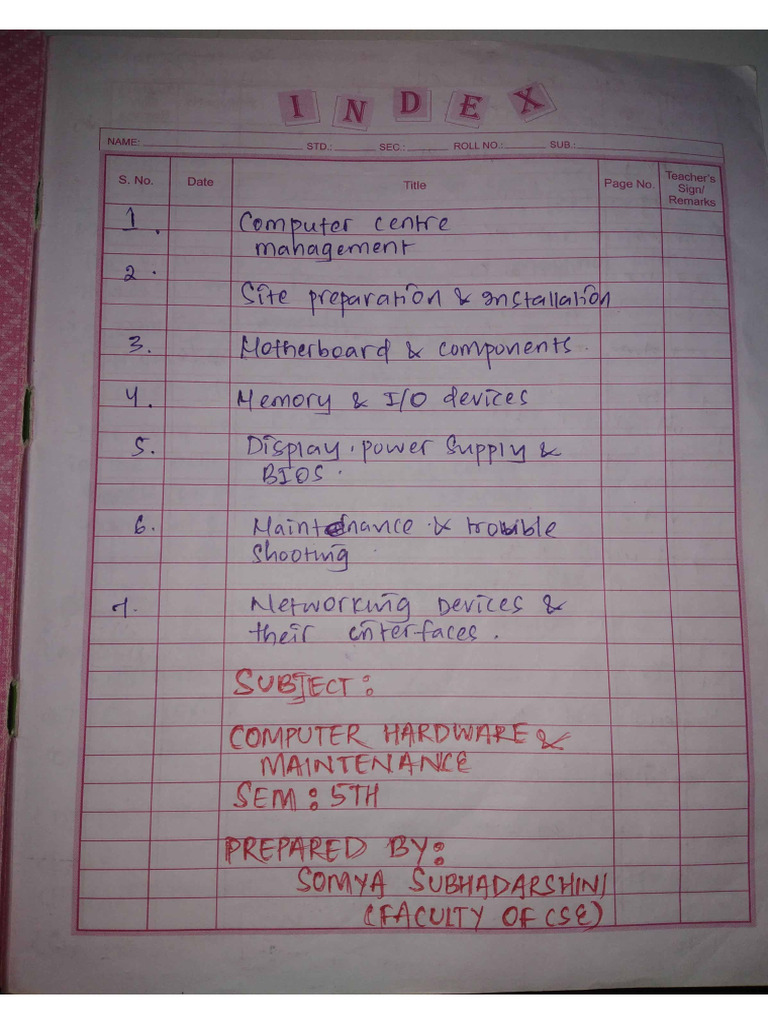 INDEX
NAME: STD.: SEC.: ROLL NO.: SUB.:
S. No. Date Title Page No. Teacher's Sign/ Remarks
1. Computer centre
management
2.
Site preparation & Installation
3. Motherboard & components.
4. Memory & I/O devices
5. Display, power supply &
BIOS.
6. Maintenance & trouble
shooting
7. Networking Devices &
their interfaces.
SUBJECT:
COMPUTER HARDWARE &
MAINTENANCE
SEM: 5TH
PREPARED BY:
SOMYA SUBHADARSHINI
(FACULTY OF CSE)